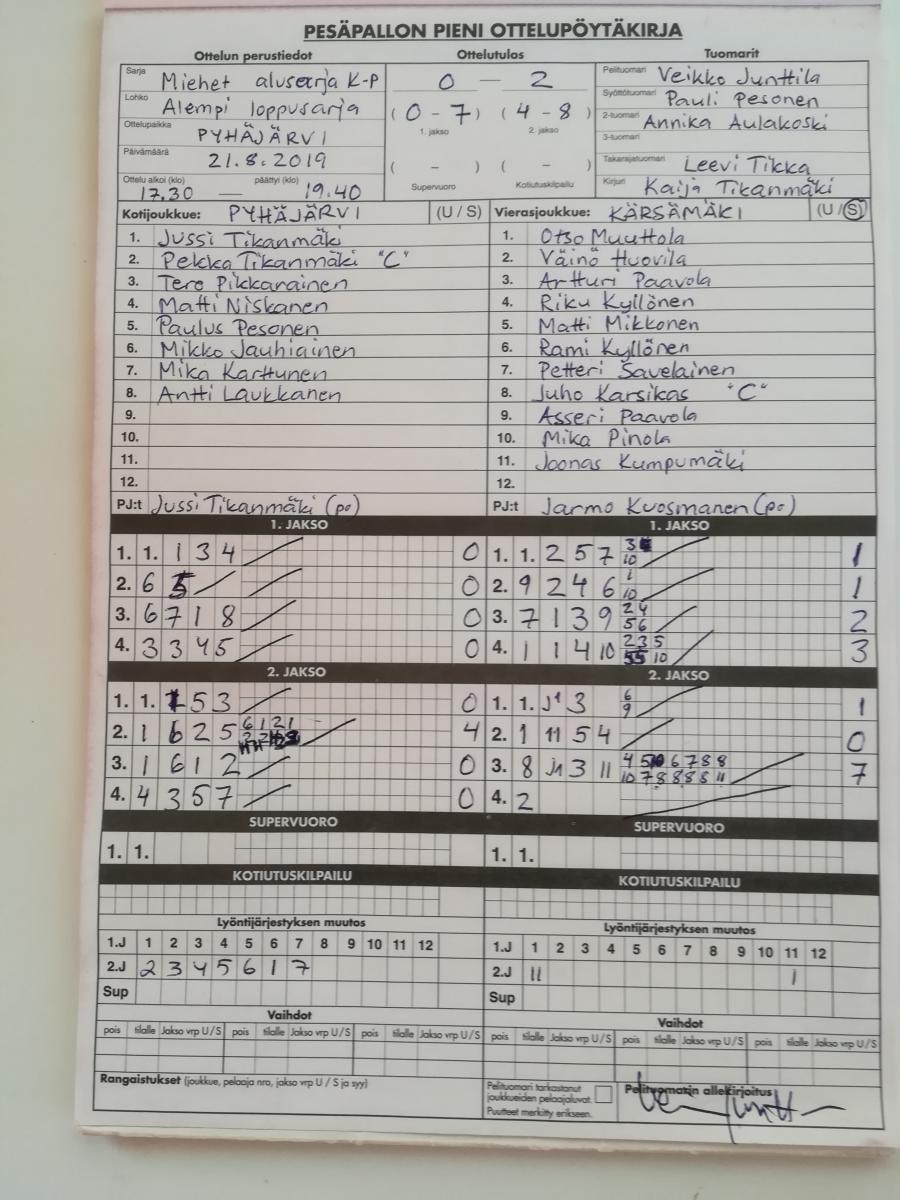 PESÄPALLON PIENI OTTELUPÖYTÄKIRJA
Ottelun perustiedot Ottelutulos Tuomarit
Sarja Miehet alusarja K-P 0 — 2 Pelituomari Veikko Junttila
Lohko Alempi loppusarja (0 - 7) (4 - 8) Syöttötuomari Pauli Pesonen
1. jakso 2. jakso
Ottelupaikka PYHÄJÄRVI 2-tuomari Annika Aulakoski
3-tuomari
Päivämäärä 21.8.2019 ( - ) ( - ) Takarajatuomari Leevi Tikka
Ottelu alkoi (klo) 17.30 — päättyi (klo) 19.40 Supervuoro Kotiutuskilpailu Kirjuri Kaija Tikanmäki
Kotijoukkue: PYHÄJÄRVI (U / S) Vierasjoukkue: KÄRSÄMÄKI (U / S)
1. Jussi Tikanmäki 1. Otso Muuttola
2. Pekka Tikanmäki "C" 2. Väinö Huovila
3. Tero Pikkarainen 3. Artturi Paavola
4. Matti Niskanen 4. Riku Kyllönen
5. Paulus Pesonen 5. Matti Mikkonen
6. Mikko Jauhiainen 6. Rami Kyllönen
7. Mika Karttunen 7. Petteri Savelainen
8. Antti Laukkanen 8. Juho Karsikas "C"
9. 9. Asseri Paavola
10. 10. Mika Pinola
11. 11. Joonas Kumpumäki
12. 12.
PJ:t Jussi Tikanmäki (po) PJ:t Jarmo Kuosmanen (po)
1. JAKSO 1. JAKSO
1. 1. 1 3 4 0 1. 1. 2 5 7 3 10 1
2. 6 5 0 2. 9 2 4 6 1 10 1
3. 6 7 1 8 0 3. 7 1 3 9 2 4 5 6 2
4. 3 3 4 5 0 4. 1 1 4 10 2 3 5 10 3
2. JAKSO 2. JAKSO
1. 1. 5 3 0 1. 1. J1 3 6 9 1
2. 1 6 2 5 6 1 2 1 4 2. 1 11 5 4 0
3. 1 6 1 2 0 3. 8 J1 3 11 4 5 6 7 8 8 10 7 8 8 8 8 11 7
4. 4 3 5 7 0 4. 2
SUPERVUORO SUPERVUORO
1. 1. 1. 1.
KOTIUTUSKILPAILU KOTIUTUSKILPAILU
Lyöntijärjestyksen muutos Lyöntijärjestyksen muutos
1.J 1 2 3 4 5 6 7 8 9 10 11 12 1.J 1 2 3 4 5 6 7 8 9 10 11 12
2.J 2 3 4 5 6 1 7 2.J 11 1
Sup Sup
Vaihdot Vaihdot
pois tilalle Jakso vrp U / S pois tilalle Jakso vrp U / S pois tilalle Jakso vrp U / S pois tilalle Jakso vrp U / S pois tilalle Jakso vrp U / S pois tilalle Jakso vrp U / S
Rangaistukset (joukkue, pelaaja nro, jakso vrp U / S ja syy) Pelituomari tarkastanut joukkueiden pelaajaluvat. Puutteet merkitty erikseen. Pelituomarin allekirjoitus